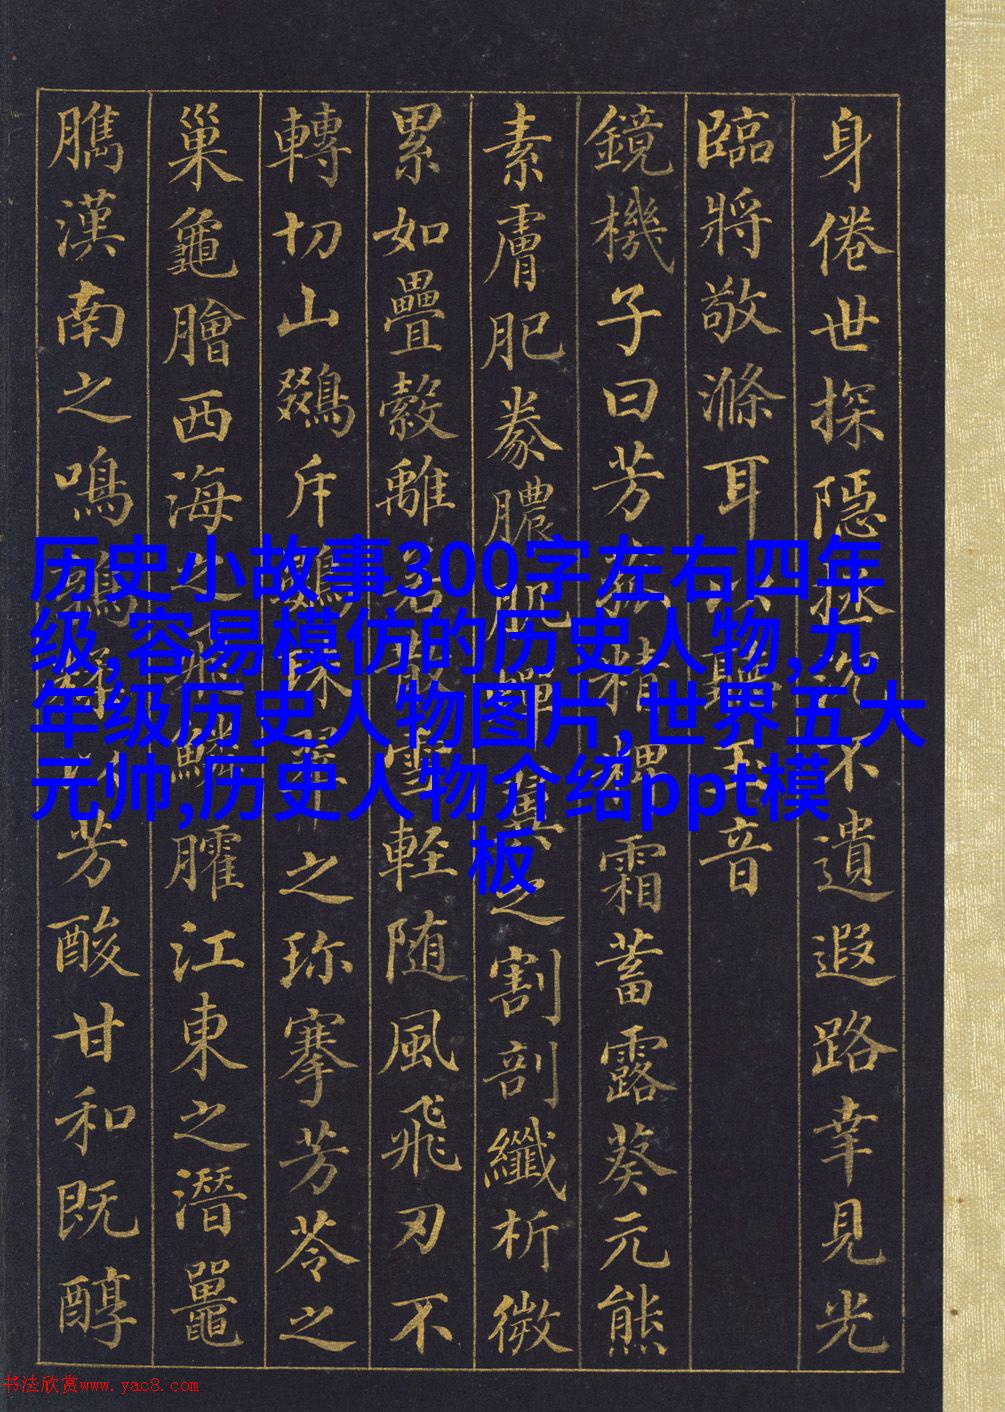 身倦世探隱拯沉不遺遐路幸見光
臨將敬滌耳以聽玉音
鏡機子曰芳菰精粺霜蓄露葵元熊
素膚肥豢膿肌蟬翼之割剖纖析微
累如疊縠離若散雪輕随風飛刃不
轉切山鵽斥鷃珠翠之珍搴芳苓之
巢龜膾西海之飛鱗臛江東之潛鼉
臇漢南之鳴鶉糅以芳酸甘和既醇
历史小故事300字左右四年
级,容易模仿的历史人物,九
年级历史人物图片,世界五大
元帅,历史人物介绍ppt模
板
书法欣赏www.yac8.com